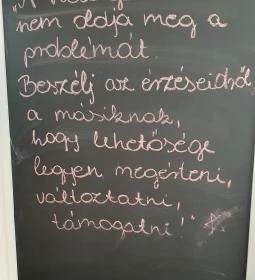 nem oldja meg a
problémát.
Beszélj az érzéseidről
a másiknak,
hogy lehetősége
legyen megérteni,
változtatni,
támogatni!"